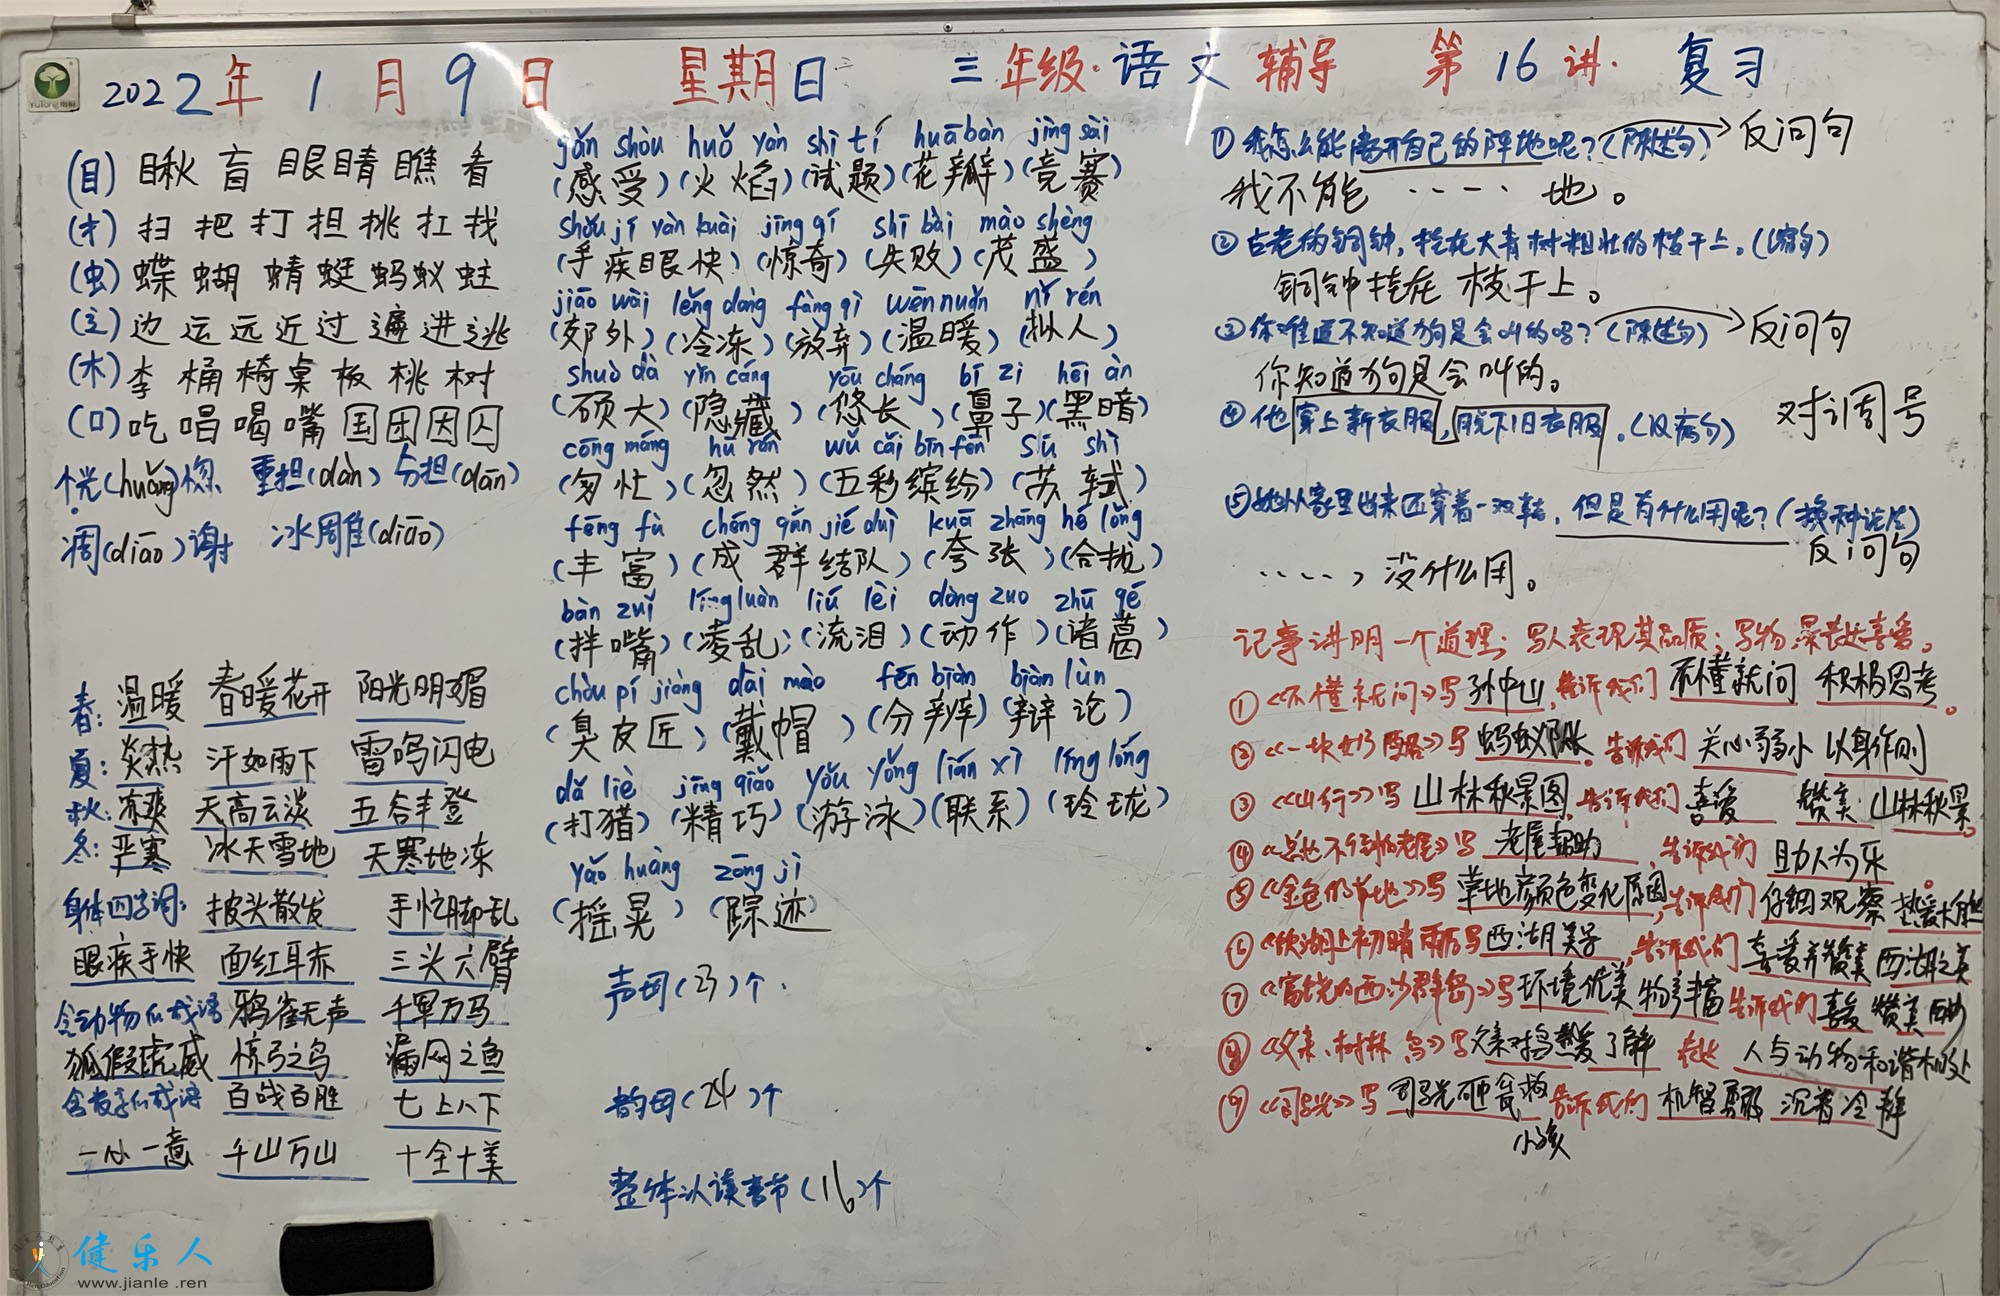 YuTong 雨桐
2022年1月9日 星期日 三年级·语文辅导 第16讲·复习
(目) 瞅 盲 眼 睛 瞧 看
(扌) 扫 把 打 担 挑 扛 找
(虫) 蝶 蝴 蜻 蜓 蚂 蚁 蛀
(辶) 边 运 远 近 过 遍 进 逃
(木) 李 桶 椅 桌 板 桃 树
(口) 吃 唱 喝 嘴 国 团 因 囚
恍(huǎng)惚 重担(dàn) 分担(dān)
凋(diāo)谢 冰雕(diāo)
春: 温暖 春暖花开 阳光明媚
夏: 炎热 汗如雨下 雷鸣闪电
秋: 凉爽 天高云淡 五谷丰登
冬: 严寒 冰天雪地 天寒地冻
身体四字词: 披头散发 手忙脚乱
眼疾手快 面红耳赤 三头六臂
含动物的成语 鸦雀无声 千军万马
狐假虎威 惊弓之鸟 漏网之鱼
含数字的成语 百战百胜 七上八下
一心一意 千山万山 十全十美
gǎn shòu huǒ yàn shì tí huā bàn jìng sài
(感受)(火焰)(试题)(花瓣)(竞赛)
shǒu jí yǎn kuài jīng qí shī bài mào shèng
(手疾眼快)(惊奇)(失败)(茂盛)
jiāo wài lěng dòng fàng qì wēn nuǎn nǐ rén
(郊外)(冷冻)(放弃)(温暖)(拟人)
shuò dà yǐn cáng yōu cháng bí zi hēi àn
(硕大)(隐藏)(悠长)(鼻子)(黑暗)
cōng máng hū rán wǔ cǎi bīn fēn sū shì
(匆忙)(忽然)(五彩缤纷)(苏轼)
fēng fù chéng qún jié duì kuā zhāng hé lǒng
(丰富)(成群结队)(夸张)(合拢)
bàn zuǐ líng luàn liú lèi dòng zuo zhū gé
(拌嘴)(凌乱)(流泪)(动作)(诸葛)
chòu pí jiàng dài mào fēn biàn biàn lùn
(臭皮匠)(戴帽)(分辨)(辩论)
dǎ liè jīng qiǎo yóu yǒng lián xì líng lóng
(打猎)(精巧)(游泳)(联系)(玲珑)
yáo huàng zōng jì
(摇晃)(踪迹)
声母(23)个.
韵母(24)个
整体认读音节(16)个
①我怎么能离开自己的阵地呢?(陈述句) 反问句
我不能……地。
②古老的铜钟,挂在大青树粗壮的枝干上。(缩句)
铜钟挂在枝干上。
③你难道不知道狗是会叫的吗?(陈述句) 反问句
你知道狗是会叫的。
④他穿上新衣服,脱下旧衣服。(改病句) 对调号
⑤她从家里出来还穿着一双鞋,但是有什么用呢?(换种说法)
反问句
……,没什么用。
记事讲明一个道理;写人表现其品质;写物深表达喜爱。
①《不懂就问》写孙中山,告诉我们 不懂就问 积极思考。
②《一块奶酪》写蚂蚁队长。告诉我们 关心弱小 以身作则
③《山行》写 山林秋景图,告诉我们 喜爱 赞美 山林秋景。
④《总也不倒的老屋》写 老屋帮助,告诉我们 助人为乐。
⑤《金色的草地》写 草地颜色变化原因,告诉我们 仔细观察 热爱大自然
⑥《饮湖上初晴雨后》写西湖美景,告诉我们 喜爱并赞美西湖之美
⑦《富饶的西沙群岛》写环境优美 物产丰富 告诉我们 喜爱 赞美 西沙
⑧《父亲、树林 鸟》写父亲对鸟热爱了解 表达 人与动物和谐相处
⑨《司马光》写 司马光砸瓮救 告诉我们 机智勇敢 沉着冷静
小孩
健乐人
www.jianle.ren